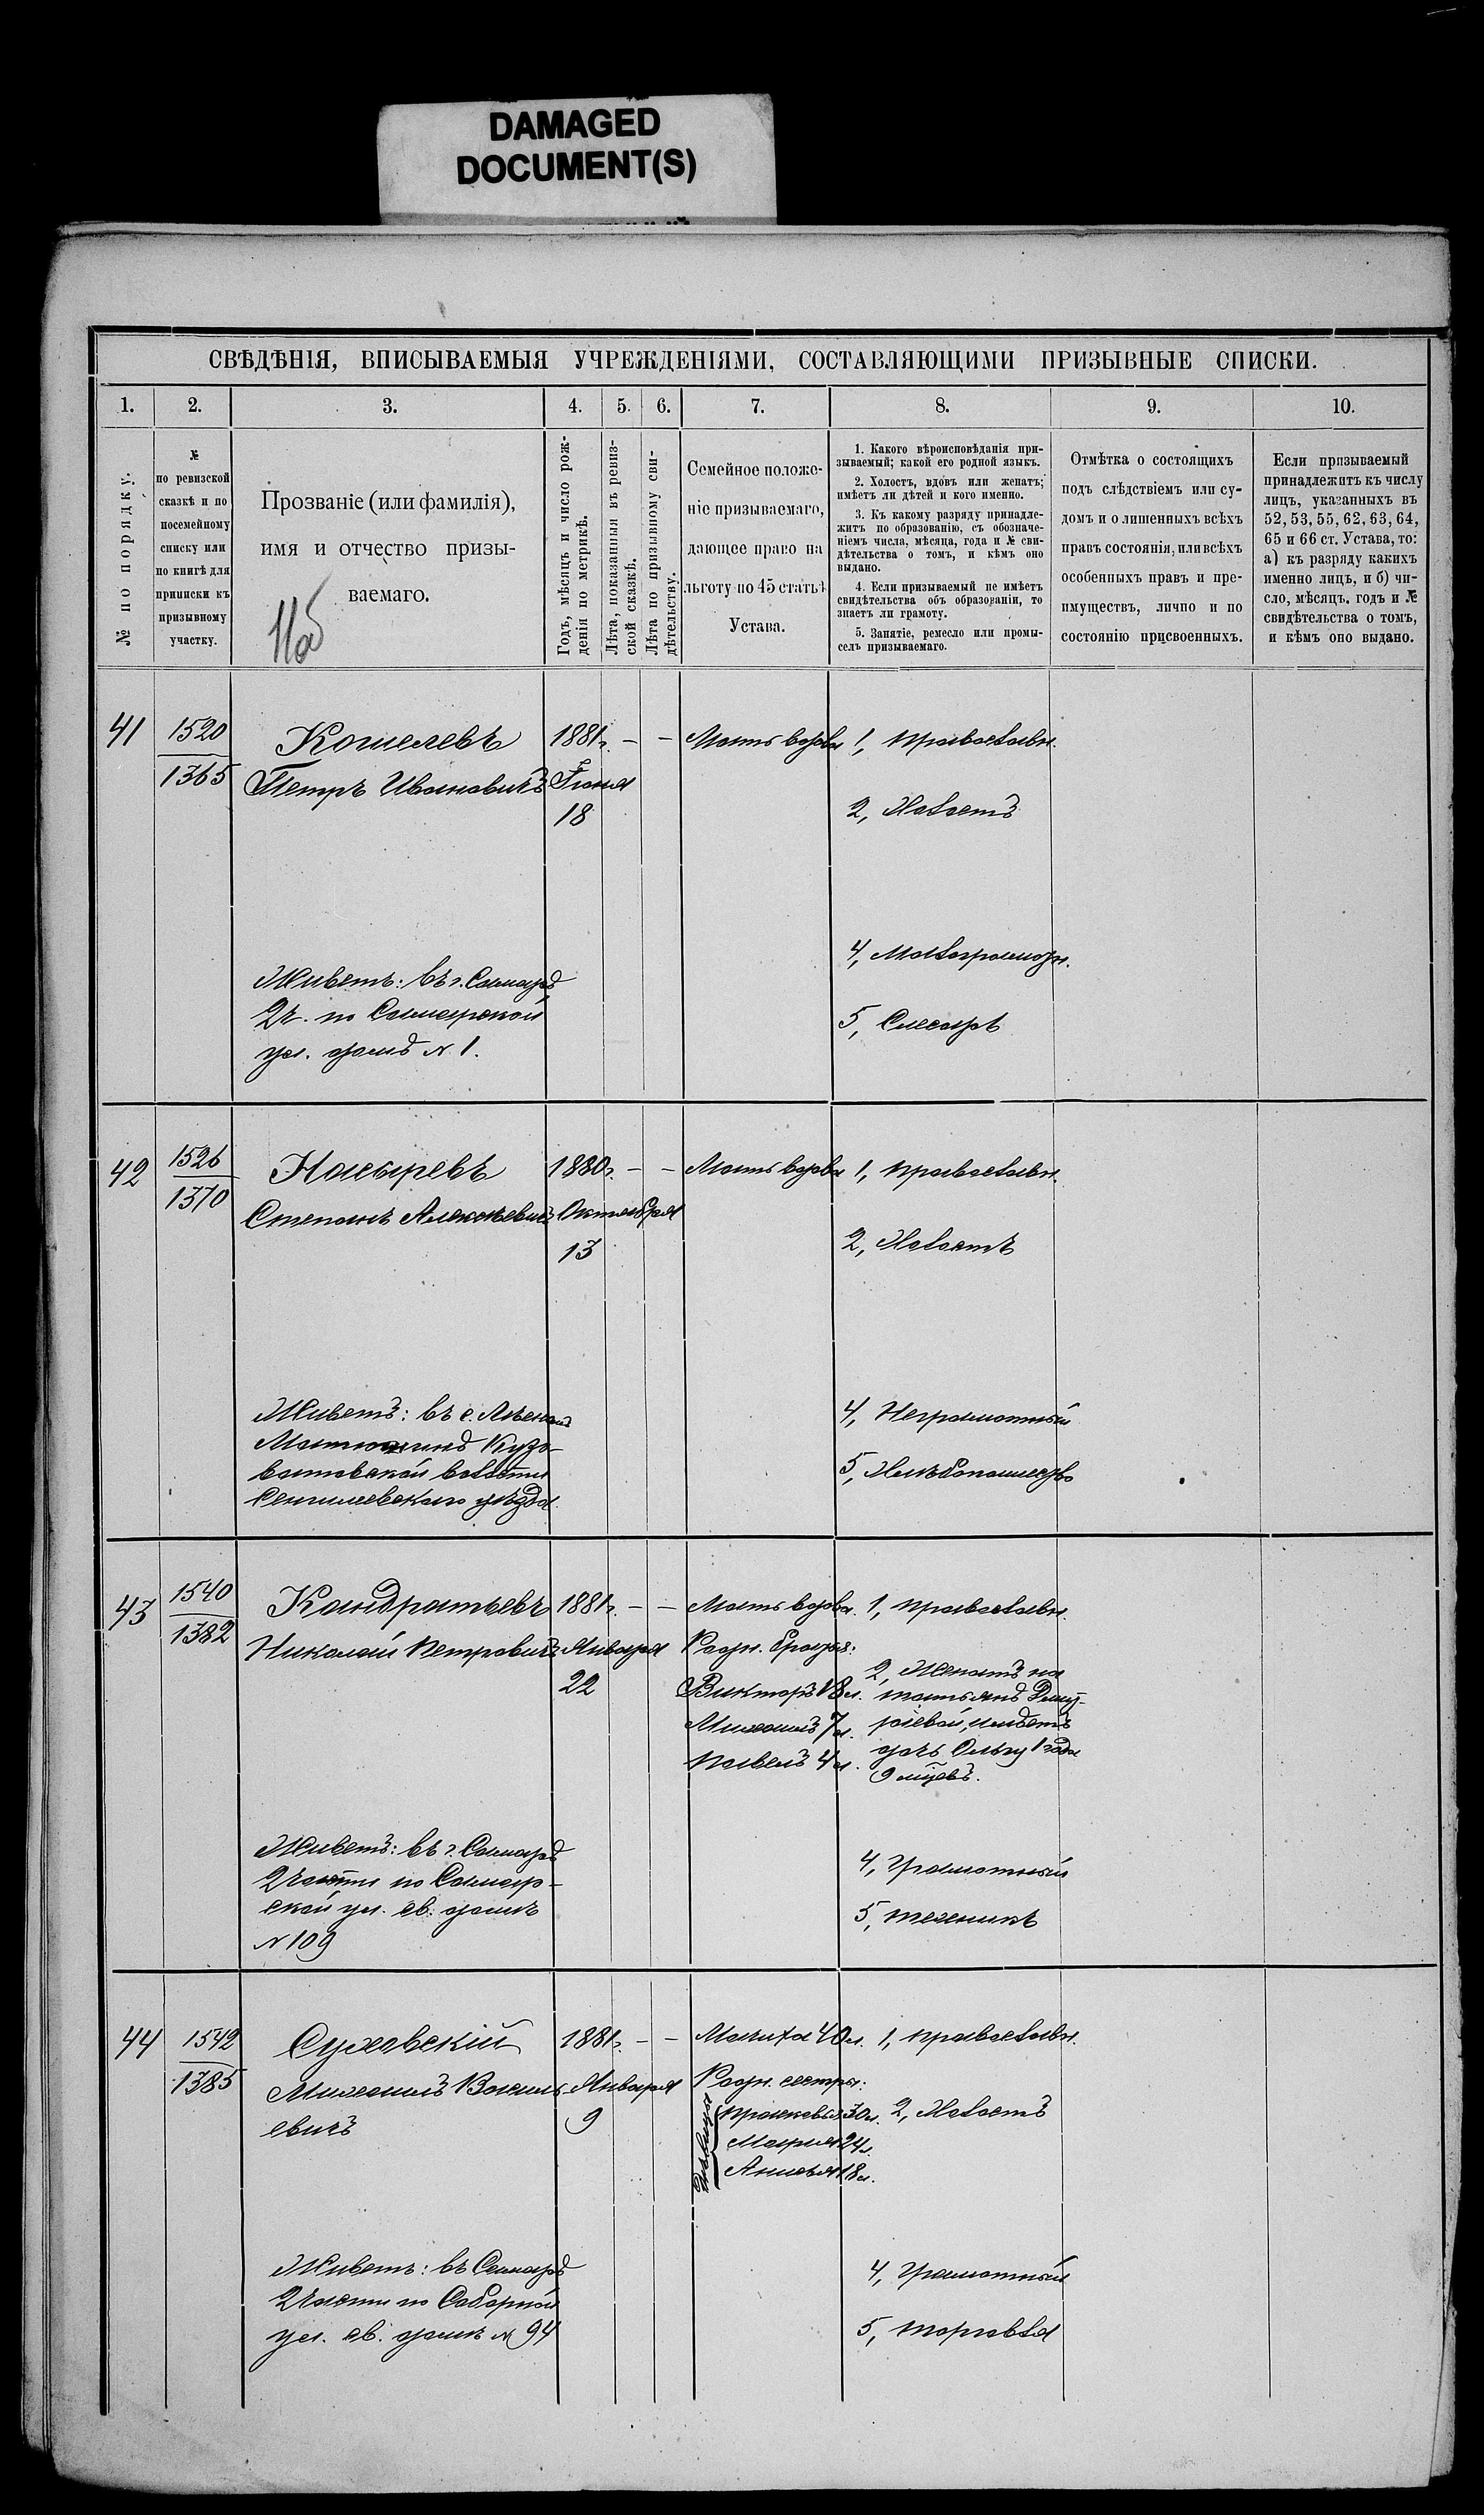 DAMAGED
DOCUMENT(S)
СВѢДѢНІЯ, ВПИСЫВАЕМЫЯ УЧРЕЖДЕНІЯМИ, СОСТАВЛЯЮЩИМИ ПРИЗЫВНЫЕ СПИСКИ.
1. 2. 3. 4. 5. 6. 7. 8. 9. 10.
№ по порядку.
№
по ревизской
сказкѣ и по
посемейному
списку или
по книгѣ для
приписки къ
призывному
участку.
Прозваніе (или фамилія),
имя и отчество призы-
ваемаго.
Годъ, мѣсяцъ и число рож-
денія по метрикѣ.
Лѣта, показанныя въ ревиз-
ской сказкѣ.
Лѣта по призывному сви-
дѣтельству.
Семейное положе-
ніе призываемаго,
дающее право на
льготу по 45 статьѣ
Устава.
1. Какого вѣроисповѣданія при-
зываемый; какой его родной языкъ.
2. Холостъ, вдовъ или женатъ;
имѣетъ ли дѣтей и кого именно.
3. Къ какому разряду принадле-
житъ по образованію, съ обозначе-
ніемъ числа, мѣсяца, года и № сви-
дѣтельства о томъ, и кѣмъ оно
выдано.
4. Если призываемый не имѣетъ
свидѣтельства объ образованіи, то
знаетъ ли грамоту.
5. Занятіе, ремесло или промы-
селъ призываемаго.
Отмѣтка о состоящихъ
подъ слѣдствіемъ или су-
домъ и о лишенныхъ всѣхъ
правъ состоянія, или всѣхъ
особенныхъ правъ и пре-
имуществъ, лично и по
состоянію присвоенныхъ.
Если призываемый
принадлежитъ къ числу
лицъ, указанныхъ въ
52, 53, 55, 62, 63, 64,
65 и 66 ст. Устава, то:
а) къ разряду какихъ
именно лицъ, и б) чи-
сло, мѣсяцъ, годъ и №
свидѣтельства о томъ,
и кѣмъ оно выдано.
41 1520 Кошелевъ 1881г. — — Мать вдова 1, Православн.
1365 Петръ Ивановичъ Іюня
18 2, Холостъ
4, Малограмотн.
Живетъ: въ г. Самарѣ
2 ч. по Самарской 5, Слесарь
ул. домъ № 1.
42 1526 Насыревъ 1880г. — — Мать вдова 1, Православн.
1370 Степанъ Алексѣевичъ Октября
13 2, Холостъ
Живетъ: въ с. 4, Неграмотный
Кузо-
ватовской волости 5, Хлѣбопашество
Сенгилеевскаго уѣзда
43 1540 Кандратьевъ 1881г. — — Мать вдова. 1, Православн.
1382 Николай Петровичъ Января Родн. братья:
22 Викторъ 18 л. 2, Женатъ на
Татьянѣ
Михаилъ 7 л. имѣетъ
Павелъ 4 л. дочь Ольгу 1 года
9 мцевъ.
Живетъ: въ г. Самарѣ
2 Части по Самар- 4, Грамотный
ской ул. св. домъ
№ 109 5, техникъ
44 1542 Суховскій 1881г. — — Мачиха 40 л. 1, Православн.
1385 Михаилъ Василь- Января Родн. сестры:
евичъ 9 Прасковья 30 л. 2, Холостъ
Марія 24 л.
Анисья 18 л.
дѣвицы
Живетъ: въ Самарѣ 4, Грамотный
2 Части по Соборной
ул. св. домъ № 94 5, торговля